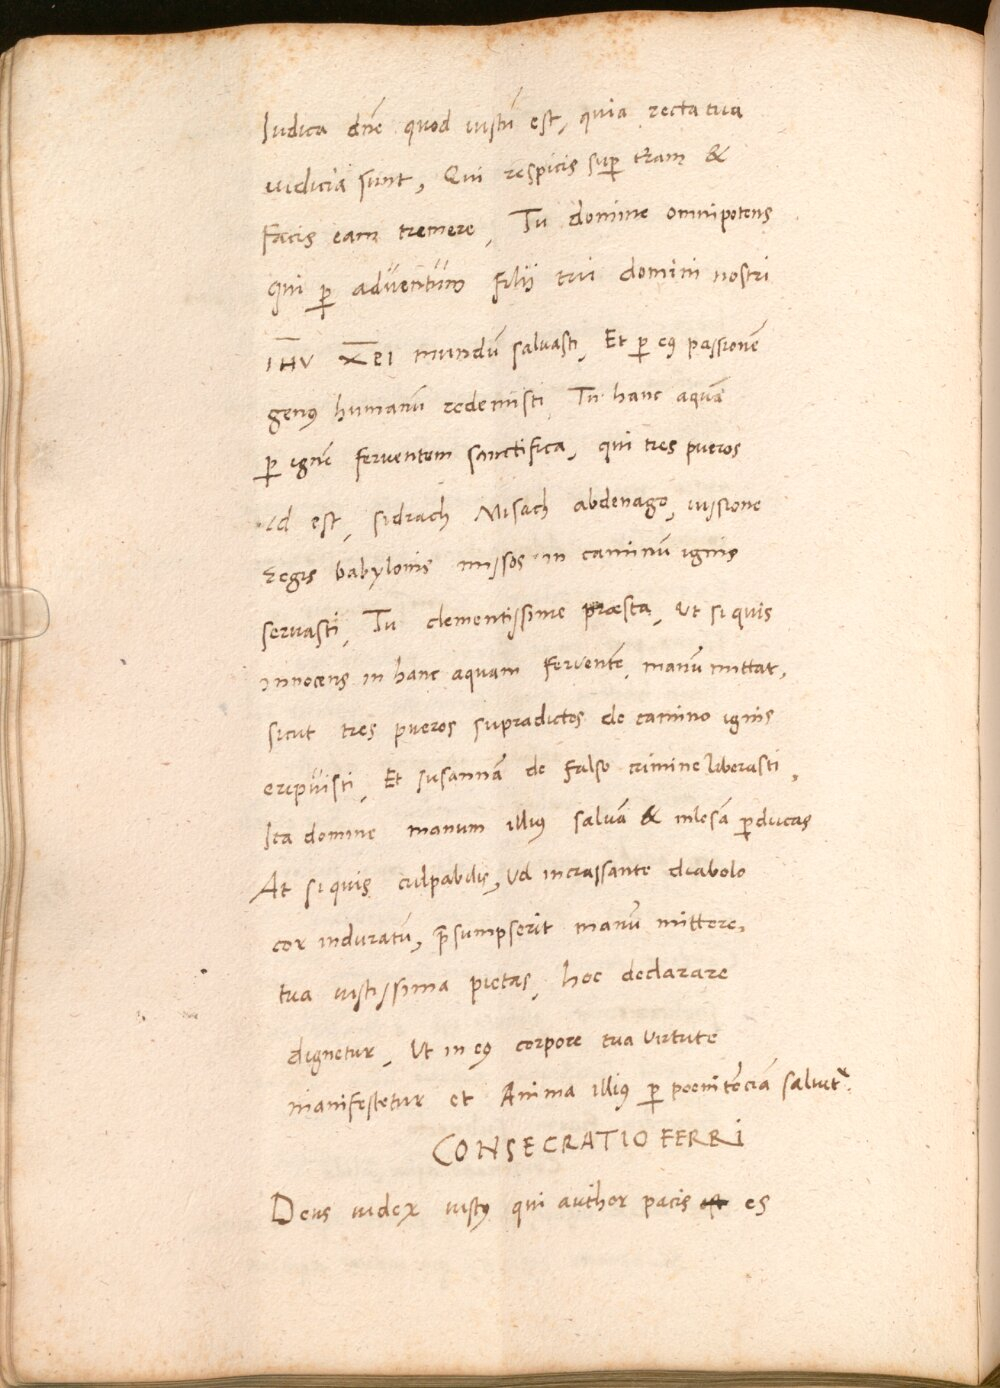 Iudica dn̄e quod iustū est, quia recta tua
iudicia sunt, Qui respicis sup̱ t̄ram &
facis eam tremere, Tu domine omnipotens
qui p̱ adventum filii tui domini nostri
IHV XPI mundū salvasti, Et p̱ eiꝰ passionē
genꝰ humanū redemisti Tu hanc aquā
p̱ ignē ferventem sanctifica, qui tres pueros
id est, sidrach Misach abdenago, iussione
Regis babylonis missos in caminū ignis
servasti, Tu clementissime præsta, Ut si quis
innocens in hanc aquam ferventē, manū mittat,
sicut tres pueros supradictos de camino ignis
eripuisti, Et susannā de falso crimine liberasti,
Ita domine manum illiꝰ salvā & inlesā p̱ducas
At si quis culpabilis, vel incrassante diabolo
cor induratū, p̄sumpserit manū mittere,
tua iustissima pietas, hoc declarare
dignetur, Ut in eiꝰ corpore tua virtute
manifestetur et Anima illiꝰ p̱ poenitēciā salvet̃.
CONSECRATIO FERRI
Deus iudex iustꝰ qui author pacis est es